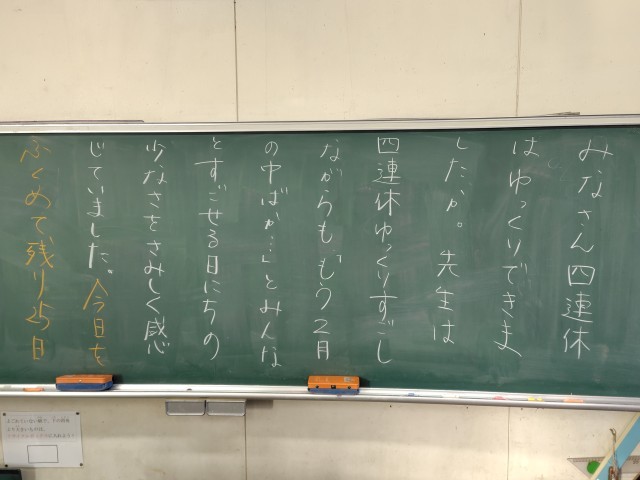 みなさん四連休
はゆっくりできま
したか。先生は
四連休ゆっくりすごし
ながらも「もう2月
の中ばか…」とみんな
とすごせる日にちの
少なさをさみしく感
じていました。今日を
ふくめて残り25日